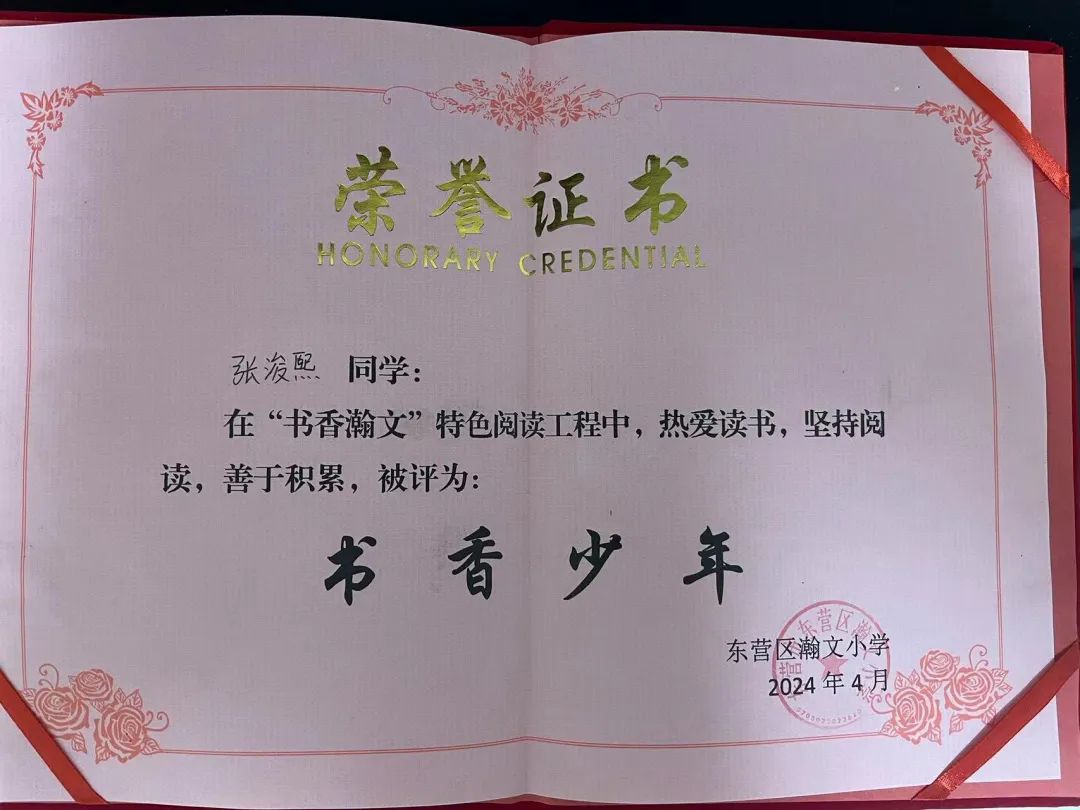 荣誉证书
HONORARY CREDENTIAL
张浚熙 同学：
在“书香瀚文”特色阅读工程中，热爱读书，坚持阅
读，善于积累，被评为：
书香少年
东营区瀚文小学
2024年4月